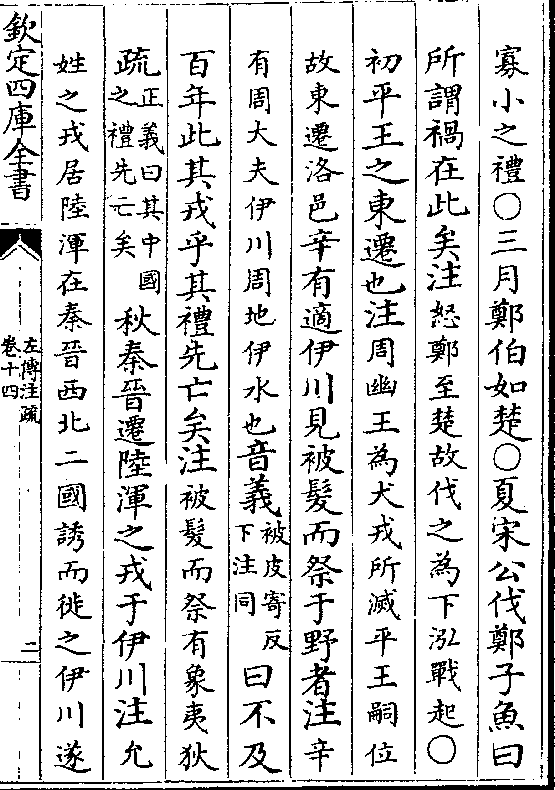 寡小之禮○三月鄭伯如楚○夏宋公伐鄭子魚曰
所謂禍在此矣注怒鄭至楚故伐之為下泓戰起○
初平王之東遷也注周幽王為犬戎所滅平王嗣位
故東遷洛邑辛有適伊川見被髮而祭于野者注辛
有周大夫伊川周地伊水也音義被皮寄反下注同曰不及
百年此其戎乎其禮先亡矣注被髮而祭有象夷狄
疏正義曰其中國之禮先亡矣秋秦晉遷陸渾之戎于伊川注允
姓之戎居陸渾在秦晉西北二國誘而徙之伊川遂
欽定四庫全書
左傳注疏
卷十四
二